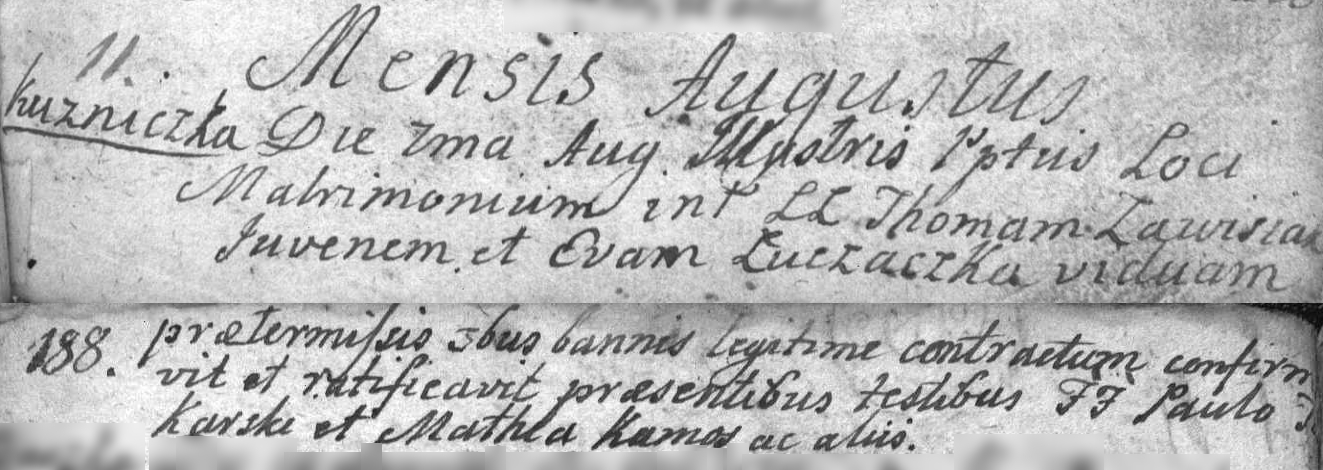 11. Mensis Augustus
Kuzniczka Die 7ma Aug. Illustris Pptus Loci
Matrimonium intr LL Thomam Zawisiak
Juvenem et Evam Łuczaczka viduam
188. prætermissis 3bus bannis legitime contractum confirm
vit et ratificavit præsentibus testibus FF Paulo
Karski et Mathia Kamos ac aliis.